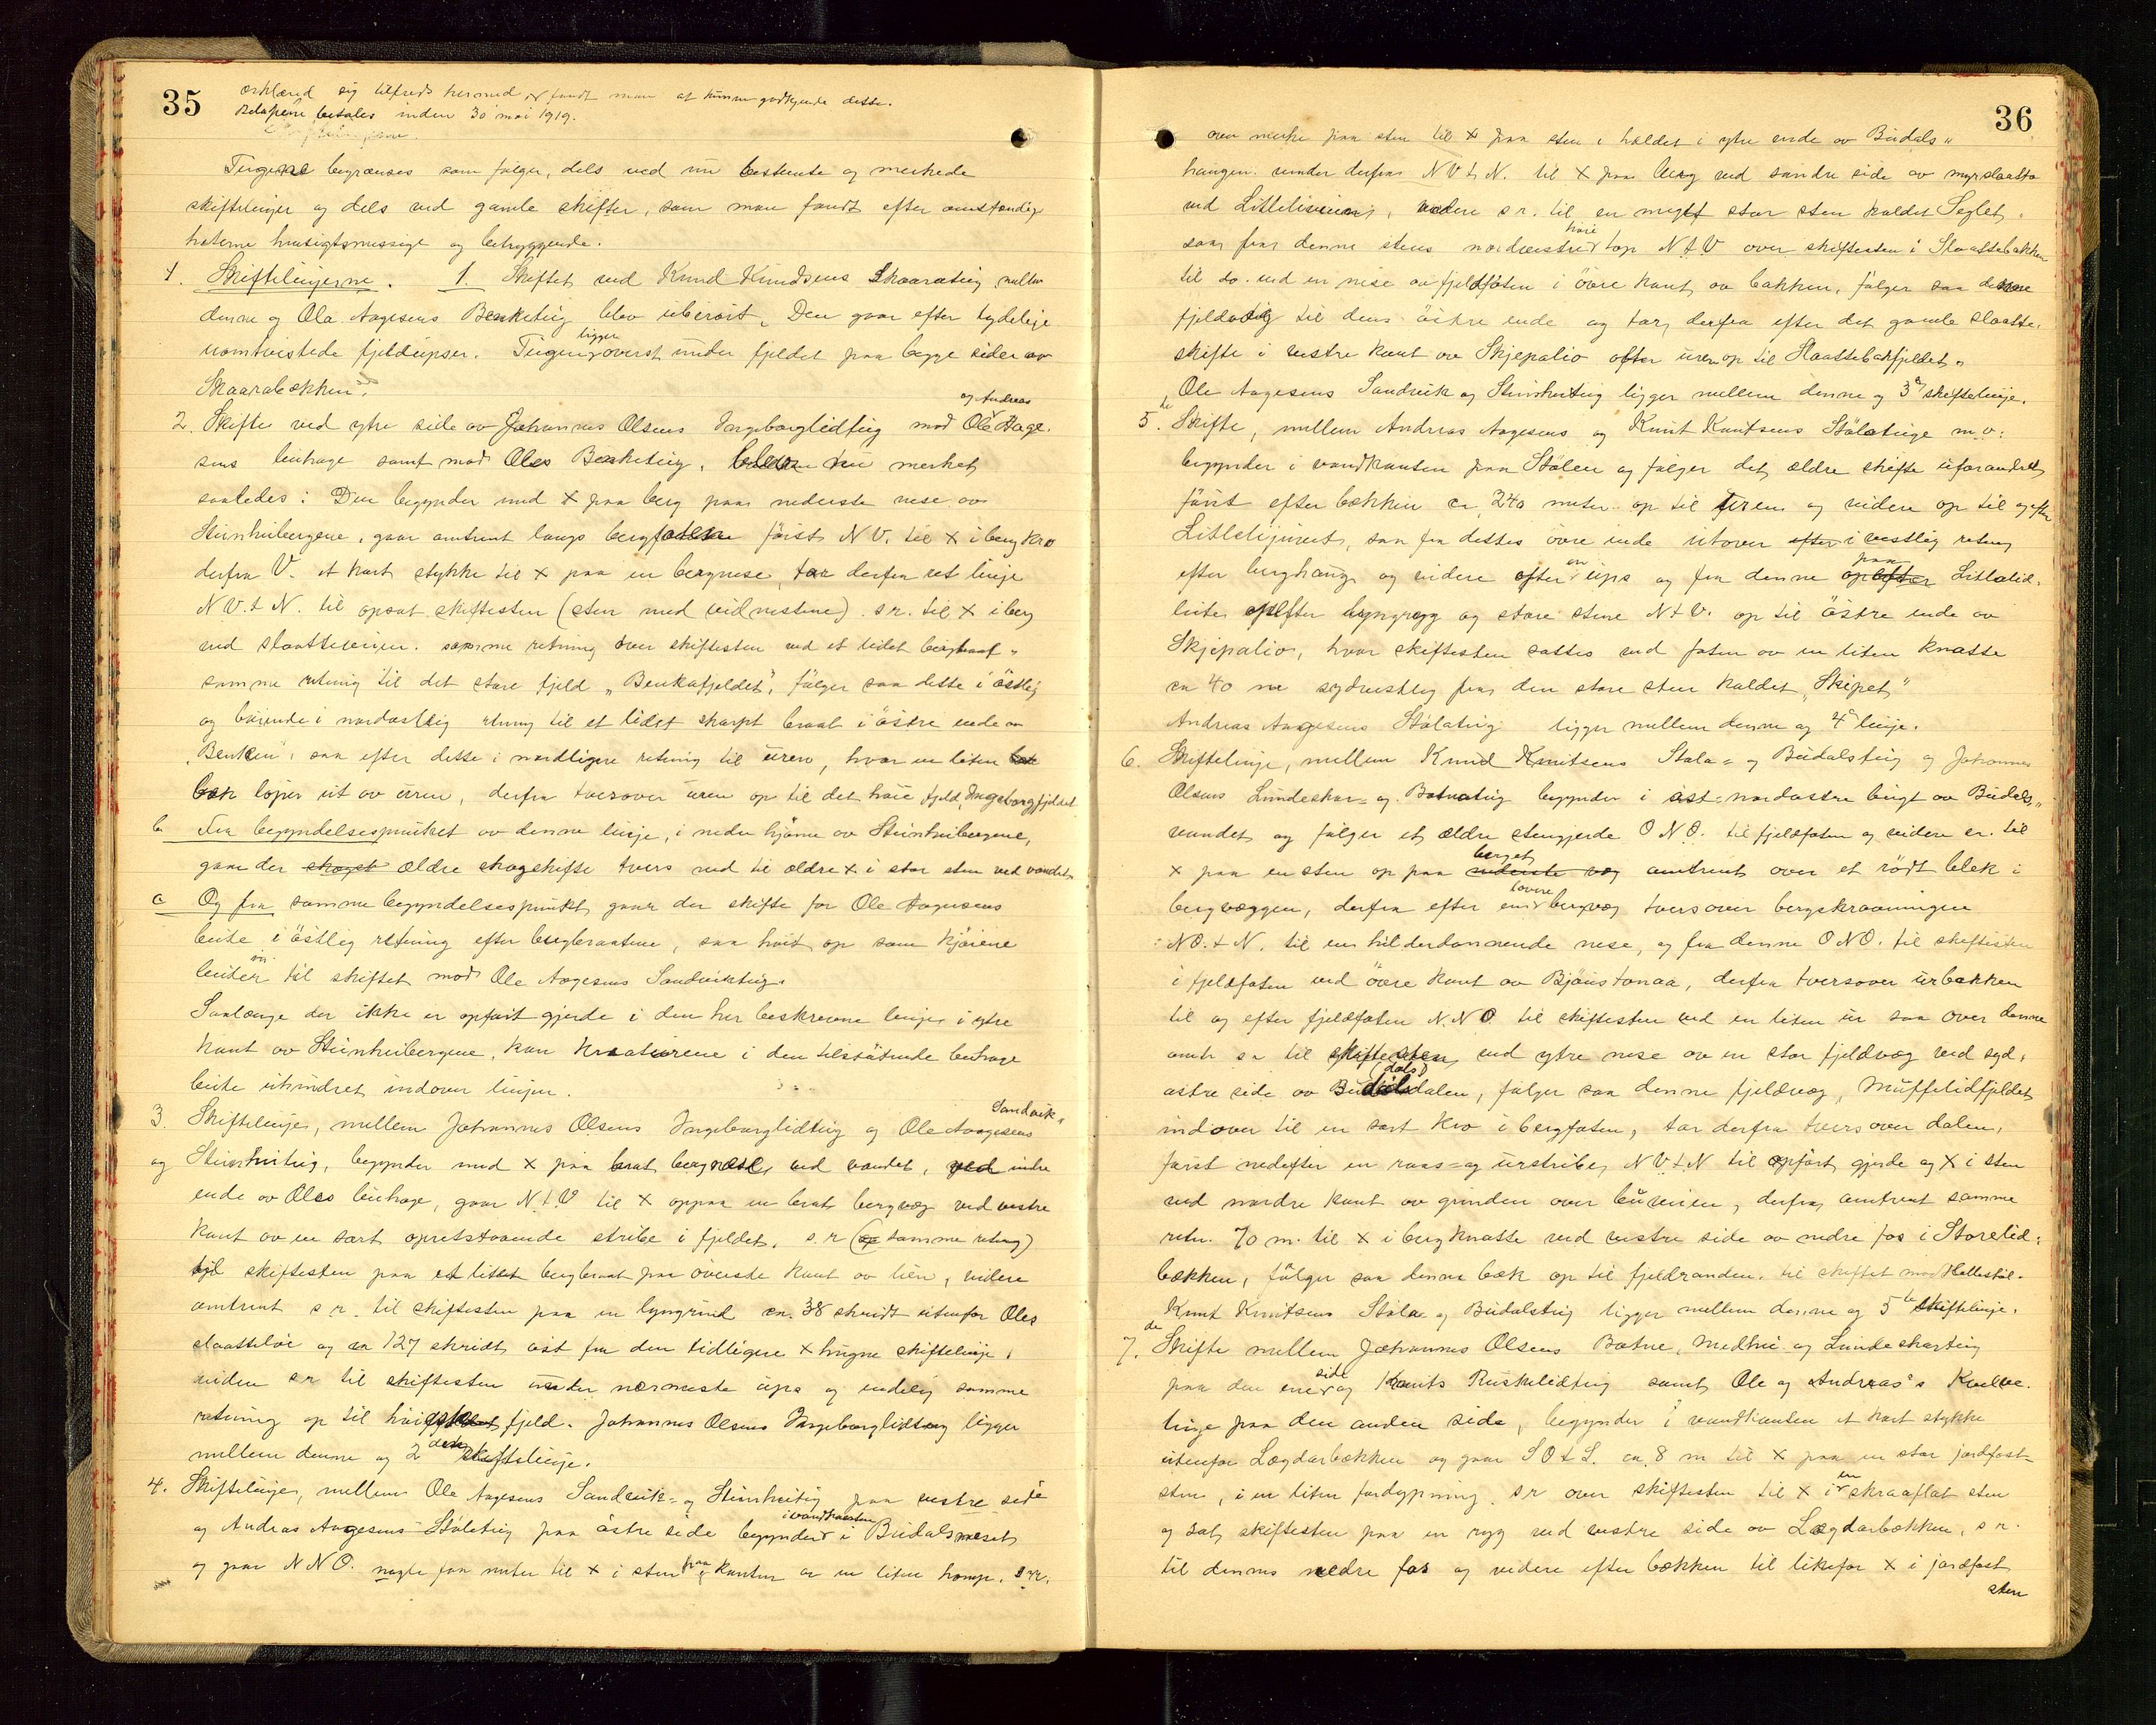 35
erklæred sig tilfreds hermed og fandt man at kunne godkjende dette.
Beløpene betales inden 30 mai 1919.
Teigene begrænses som følger, dels ved nu bestemte og merkede
skiftelinjer og dels ved gamle skifter, som man fandt efter omstændig-
heterne hensigtsmessige og betryggende.
1. Skiftelinjerne. 1. Skiftet ved Knud Knudsens Skaarateig mellem
denne og Ole Aagesens Benkteig blev uberørt. Den gaar efter tydelige
uomtvistede fjeldupser. Teigen ligger øverst under fjeldet paa begge sider av
Skaarabækken.
2. Skifte ved ytre side av Johannes Olsens Ingeborglidteig mod Ole og Andreas Aage-
sens beitehage samt mod Oles Benkteig, blev nu merket
saaledes: Den begynder med x paa berg paa nederste nese av
Steinhuibergene, gaar omtrent langs bergfoten først N V. til x i berg kro
derfra V. et kort stykke til x paa en bergnese, tar derfra ret linje
N V. t N. til opsat skiftesten (sten med vidnestene). s r. til x i berg
ved slaatteveien. samme retning over skiftesten ved et lidet bergbraat
samme retning til det store fjeld "Benkafjeldet", følger saa dette i østlig
og bøiende i nordøstlig retning til et lidet skarpt braat i østre ende av
"Benken", saa efter dette i nordligere retning til uren, hvor en liten
bæk løper ut av uren, derfra tversover uren op til det høie fjeld, Ingeborgfjeldet
b. Fra begyndelsespunktet av denne linje, i nedre hjørne av Steinhuibergene,
gaar der skoget ældre skogskifte tvers ned til ældre x i stor sten ved vandet.
c Og fra samme begyndelsespunkt gaar der skifte for Ole Aagesens
beite i østlig retning efter bergbraatene, saa høit op som kjørene
beiter til skiftet mod Ole Aagesens Sandvikteig.
Saalænge der ikke er opført gjerde i den her beskrevne linje i ytre
kant av Steinhuibergene, kan kreaturene i den tilstøtende beitehage
beite uhindret indover linjen.
3. Skiftelinje, mellem Johannes Olsens Ingeborglidteig og Ole Aagesens Sandvik-
og Steinhuiteig, begynder med x paa brat bergnese, ved vandet, ved indre
ende av Oles beitehage, gaar N t V til x oppaa en brat bergvæg ved vestre
kant av en sort opretstaaende stribe i fjeldet. s. r (samme retning)
til skiftesten paa et litet bergbraat paa øverste kant av lien, videre
omtrent s r. til skiftesten paa en lyngrind ca. 38 skridt utenfor Oles
slaatteløe og ca 127 skridt øst fra den tidligere x hugne skiftelinje,
videre s r til skiftesten under nærmeste ups og endelig samme
retning op til høieste fjeld. Johannes Olsens Ingeborglidteig ligger
mellem denne og 2 den skiftelinje.
4. Skiftelinje, mellem Ole Aagesens Sandvik- og Steinhuiteig paa vestre side
og Andreas Aagesens Stølateig paa østre side begynder i vandkanten i Budalsneset
og gaar N N O. nogle faa meter til x i sten paa kanten av en liten homp. s r.
36
over merke paa sten til x paa sten i haldet i ytre ende av Budals-
haugen. videre derfra N V t N. til x paa berg ved søndre side av myrslaatta
ved Littelimuen, videre s r. til en meget stor sten kaldet Seglet.
saa fra denne stens nordvestre høie top N t V over skiftesten i Slaattebakken
til do. ved en nese av fjeldfoten i øvre kant av bakken, følger saa denne
fjeldvæg til dens østre ende og tar derfra efter det gamle slaatte-
skifte i vestre kant av Skjepalio efter uren op til Slaattebakfjeldet.
Ole Aagesens Sandvik og Steinhuiteig ligger mellem denne og 3 die skiftelinje.
5 te. Skifte, mellem Andreas Aagesens og Knut Knutsens Stølateige m.v:
begynder i vandkanten paa Stølen og følger det ældre skifte uforandret
først efter bækken ca. 240 meter op til uren og videre op til og efter
Littelijuvet, saa fra dettes øvre ende utover efter i vestlig retning
efter berghang og videre efter en ups og fra denne op efter paa Littelid-
leite opefter lyngrygg og store stene N t V. op til østre ende av
Skjepalio, hvor skiftesten sattes ved foten av en liten knatte
ca 40 m sydvestlig fra den store sten kaldet "Skipet"
Andreas Aagesens Stølateig ligger mellem denne og 4 de linje.
6. Skiftelinje, mellem Knud Knutsens Støla- og Budalsteig og Johannes
Olsens Lundeskar- og Botnateig begynder i øst-nordøstre bugt av Budals-
vandet og følger et ældre stengjerde O N O. til fjeldfoten og videre s r. til
x paa en sten op paa berget nederste væg omtrent over et rødt blek i
bergvæggen, derfra efter en lavere bergvæg tversover bergskraaningen
N O. t N. til en hilderdannende nese, og fra denne O N O. til skiftesten
i fjeldfoten ved øvre kant av Bjønstonaa, derfra tversover urbækken
til og efter fjeldfoten N. N O. til skiftesten ved en liten ur saa over denne
omtr s r til skiftesten ved ytre nese av en stor fjeldvæg ved syd-
østre side av Budalsdalen, følger saa denne fjeldvæg, Muffelidfjeldet
indover til en sort kro i bergfoten, tar derfra tvers over dalen,
først nedefter en raas- og urstribe, N V t N til opført gjerde og x i sten
ved nordre kant av grinden over buveien, derfra omtrent samme
retn. 70 m. til x i bergknatte ved vestre side av nedre fos i Storelid-
bækken, følger saa denne bæk op til fjeldranden. til skiftet mod Hallestøl.
Knut Knutsens Støla og Budalsteig ligger mellem denne og 5 te skiftelinje.
7 de. Skifte mellem Johannes Olsens Botne, Medhui og Lundeskarteig
paa den ene side og Knuts Ruskelidteig samt Ole og Andreas's Kvelve-
teige paa den anden side, begynder i vandkanten et kort stykke
utenfor Lægdarbækken og gaar S O t S. ca. 8 m til x paa en stor jordfast
sten, i en liten fordypning. s r over skiftesten til x i en skraaflat sten
og sat skiftesten paa en ryg ved vestre side av Lægdarbækken, s r.
til dennes nedre fos og videre efter bækken til likefor x i jordfast
sten